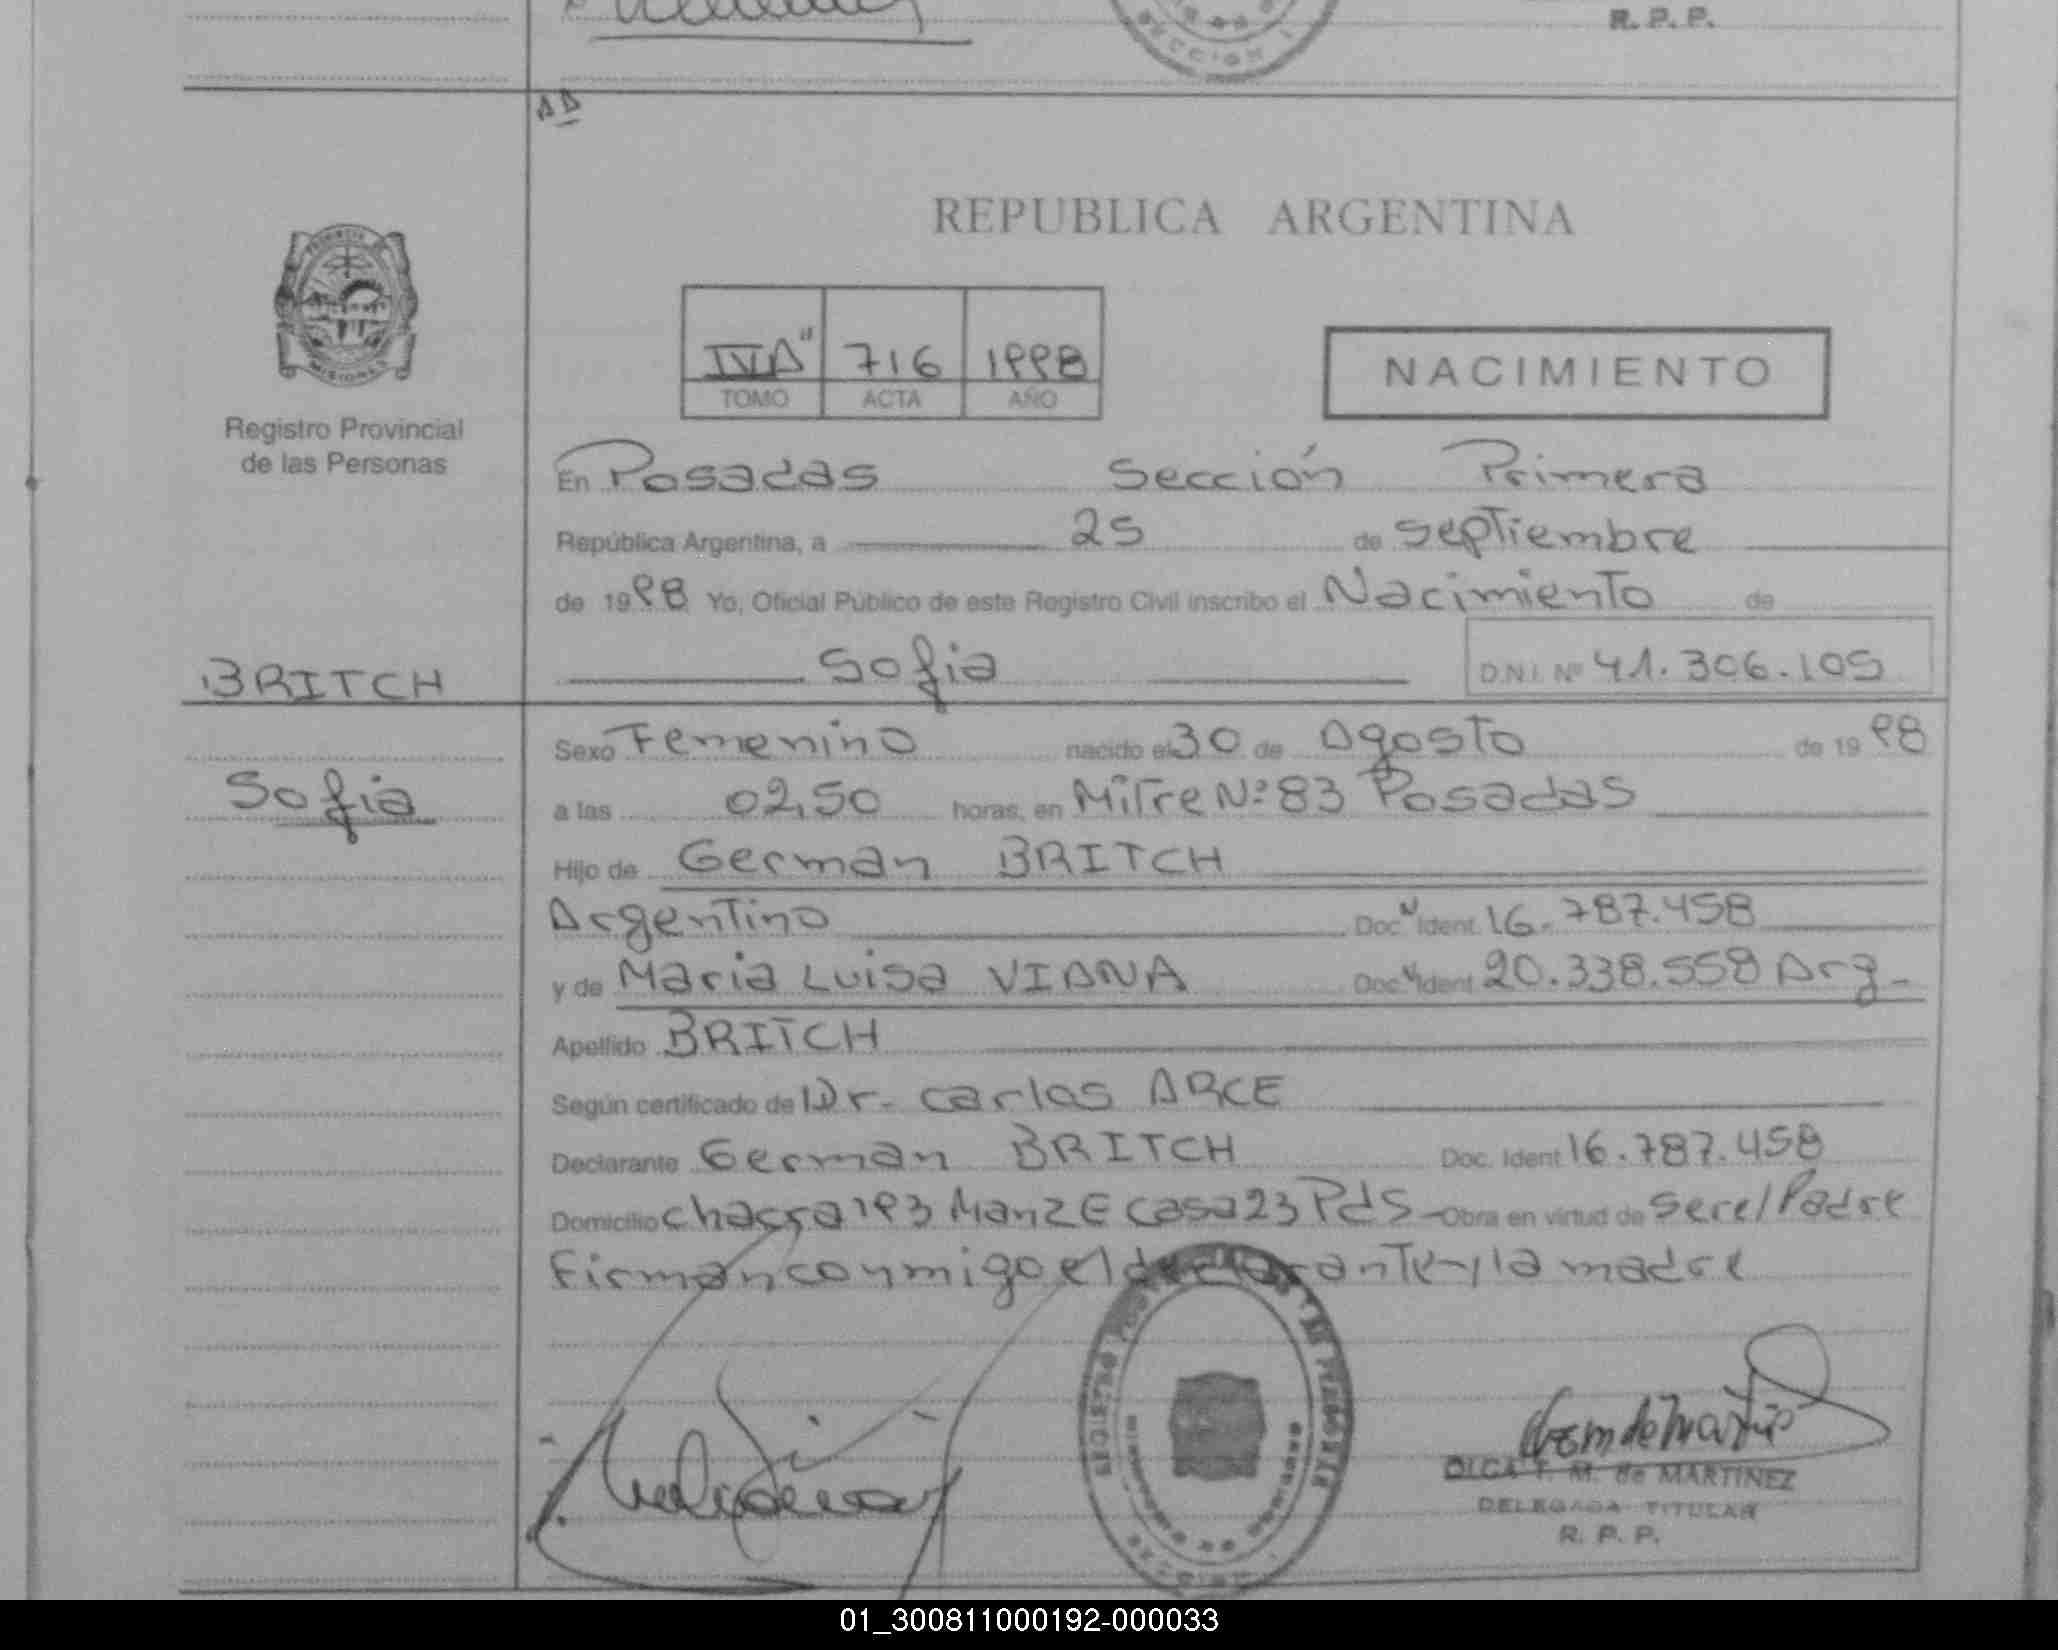 R. P. P.
SECCION 1
AD
REPUBLICA ARGENTINA
PROVINCIA DE
MISIONES
IV A" 716 1998
TOMO ACTA AÑO
NACIMIENTO
Registro Provincial
de las Personas
En Posadas Sección Primera
República Argentina, a 25 de septiembre
de 1998 Yo, Oficial Público de este Registro Civil inscribo el Nacimiento de
BRITCH
Sofia D.N.I. Nº 41.306.105
Sexo Femenino nacido el 30 de Agosto de 1998
Sofia
a las 02,50 horas, en Mitre Nº 83 Posadas
Hijo de German BRITCH
Argentino Doc. Ident. 16.787.458
y de Maria Luisa VIANA Doc. Ident. 20.338.558 Arg.
Apellido BRITCH
Según certificado de Dr. Carlos ARCE
Declarante German BRITCH Doc. Ident. 16.787.458
Domicilio chacra 193 Manz E casa 23 Pds - Obra en virtud de ser el Padre
Firman conmigo el declarante y la madre
OLGA T. M. de MARTINEZ
DELEGADA TITULAR
R. P. P.
01_300811000192-000033